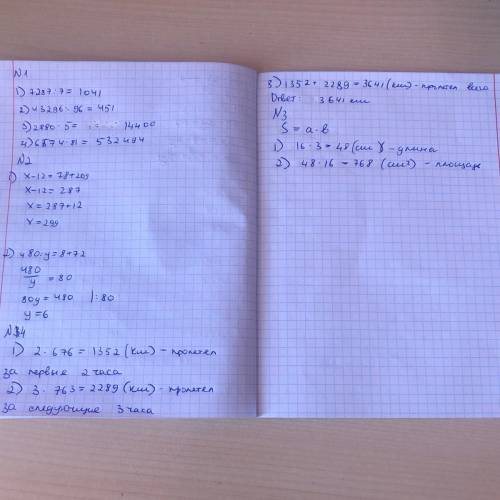 N1
1) 7287:7 = 1041
2) 43296:96 = 451
3) 2880·5= 14400
4) 6574·81 = 532494
N2
1) x-12 = 78+209
x-12 = 287
x = 287+12
x = 299
2) 480:y = 8+72
480/y = 80
80y = 480 |:80
y = 6
N4
1) 2·676 = 1352 (км) - пролетел
за первые 2 часа
2) 3·763 = 2289 (км) - пролетел
за следующие 3 часа
3) 1352 + 2289 = 3641 (км) - пролетел всего
Ответ: 3641 км
N3
S = a·b
1) 16·3 = 48 (см) - длина
2) 48·16 = 768 (см²) - площадь